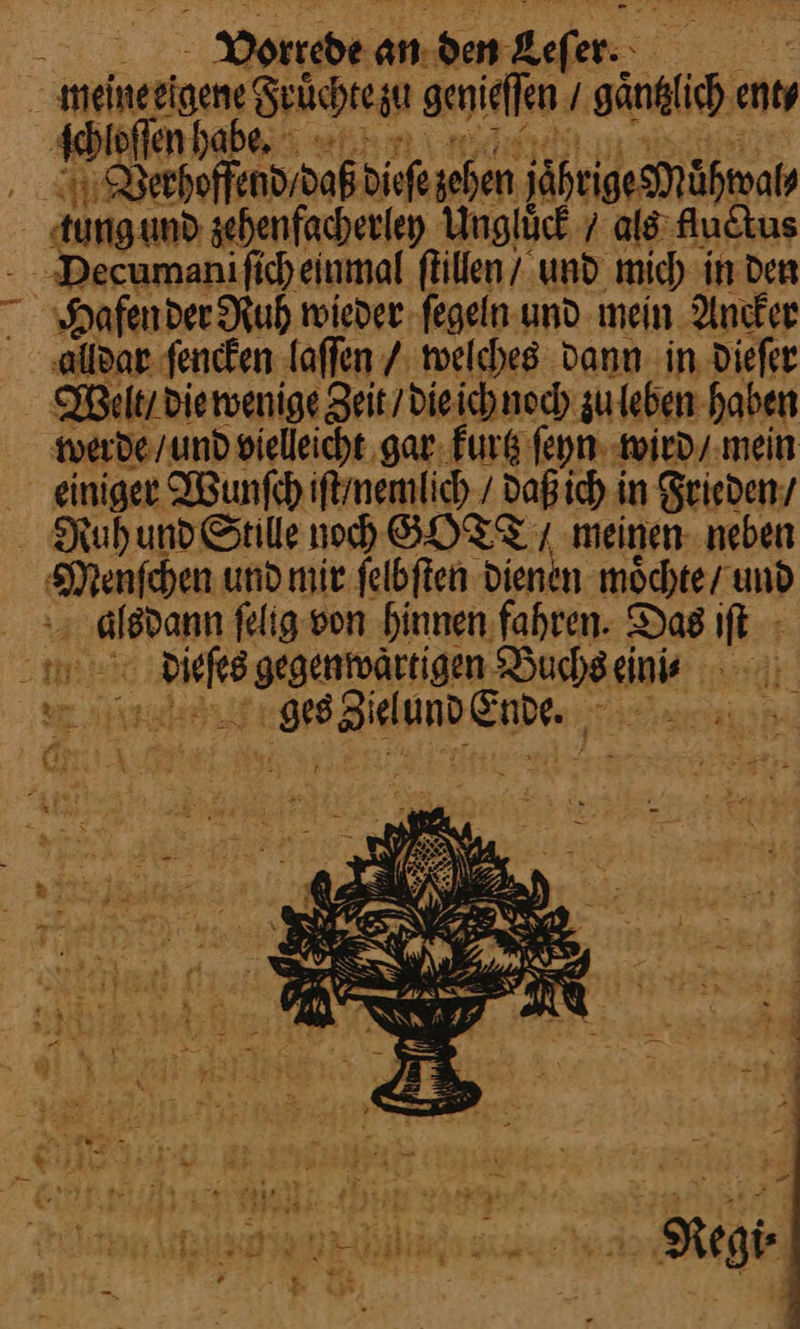 Vorrede an den Leſer.
meine eigene Fruͤchte zu genieſſen / gaͤntzlich ent⸗
ſchloſſen habe.
Verhoffend / daß dieſe zehen jaͤhrige Muͤhwal⸗
tung und zehenfacherley Ungluͤck / als fluctus
Decumani ſich einmal ſtillen / und mich in den
Hafen der Ruh wieder ſegeln und mein Ancker
alldar ſencken laſſen / welches dann in dieſer
Welt / die wenige Zeit / die ich noch zu leben haben
werde / und vielleicht gar kurtz ſeyn wird / mein
einiger Wunſch iſt / nemlich / daß ich in Frieden /
Ruh und Stille noch GOTT / meinen neben
Menſchen und mir ſelbſten dienen moͤchte / und
alsdann ſelig von hinnen fahren. Das iſt
dieſes gegenwaͤrtigen Buchs eini⸗
ges Ziel und Ende.
Regi⸗